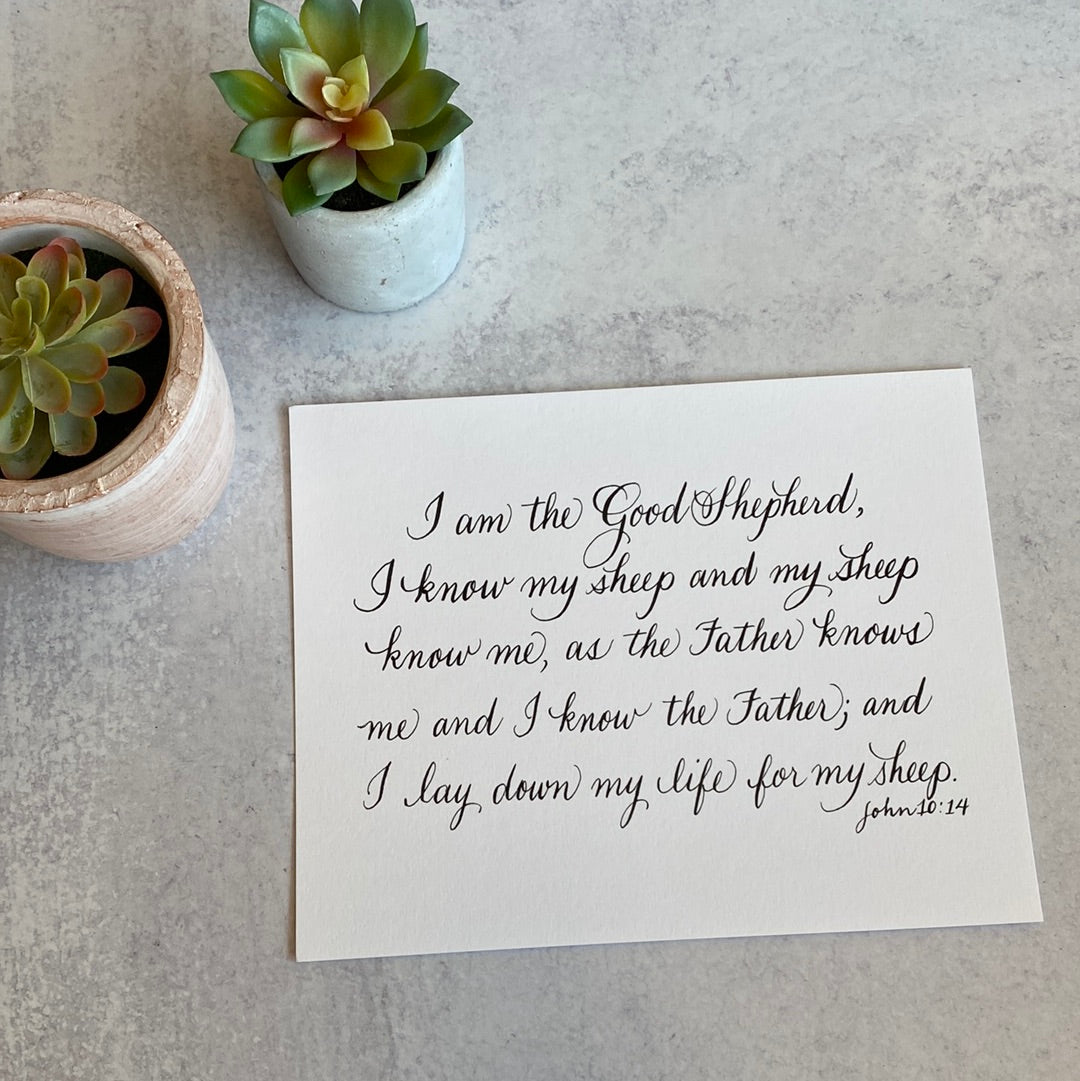 I am the Good Shepherd,
I know my sheep and my sheep
know me, as the Father knows
me and I know the Father; and
I lay down my life for my sheep.
John 10:14